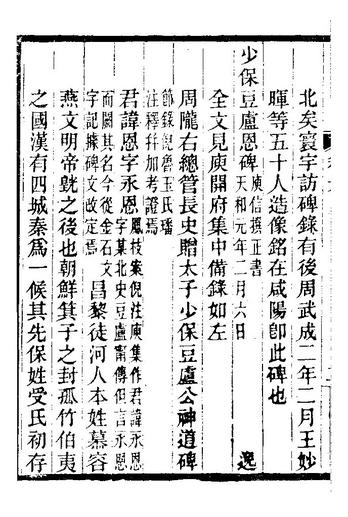 北矣寰宇訪碑錄有後周武成二年二月王妙
暉等五十人造像銘在咸陽卽此碑也
少保豆盧恩碑 庾信撰正書 天和元年二月六日 逸
全文見庾開府集中備錄如左
周隴右總管長史贈太子少保豆盧公神道碑
節錄倪魯玉氏璠
注釋幷加考證焉
君諱恩字永恩 鳳枝案倪注庾集作君諱永恩
字某北史豆盧甯傳但言永恩
而闕其名今從金石文
字記據碑文改定焉 昌黎徒河人本姓慕容
燕文明帝皝之後也朝鮮箕子之封孤竹伯夷
之國漢有四城秦爲一候其先保姓受氏初存